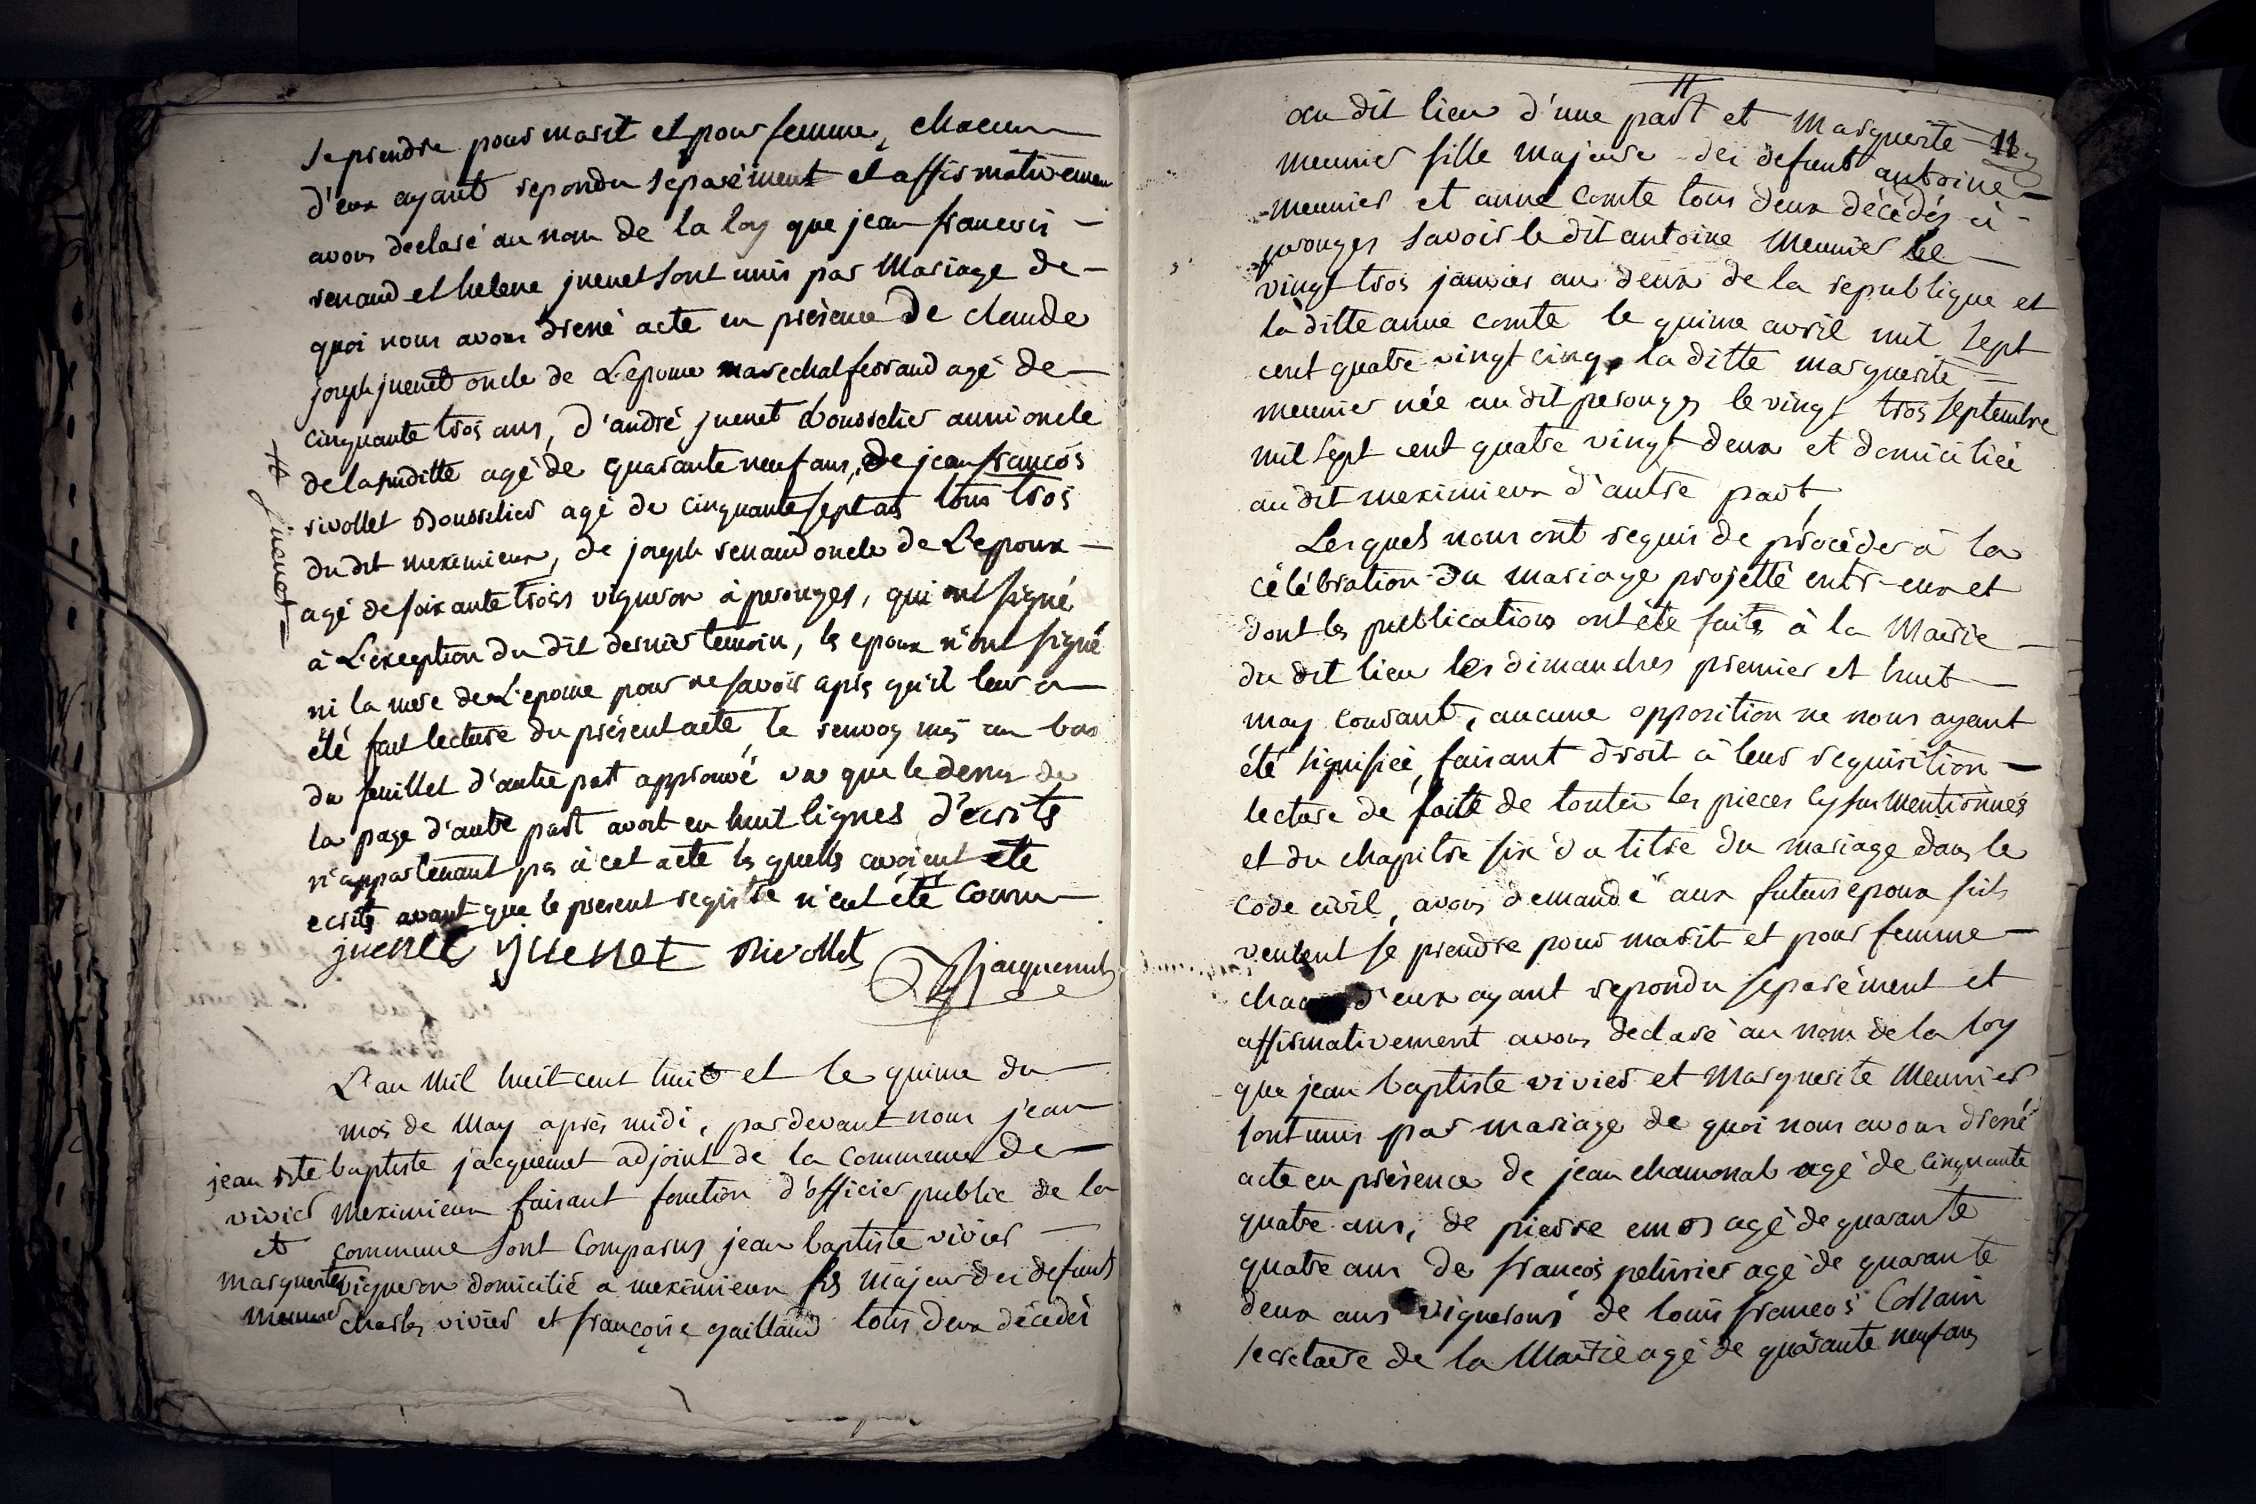 se prendre pour marit et pour femme, chacun
d'eux ayant repondu separément et affirmativemen
avons declaré au nom de la loy que jean francois
renaud et helene juenet sont unis par Mariage de
quoi nous avons dressé acte en présence de claude
joseph juenet oncle de L'epouse marechal ferrand agé de
cinquante trois ans, d'andré juenet bourrelier aussi oncle
de la susditte agé de quarante neuf ans, de jean françois
rivollet bourrelier agé de cinquante sept ans tous trois
du dit meximieux, de joseph renaud oncle de L'epoux
agé de soixante trois vigneron à perouges, qui ont signé
à L'exception du dit dernier temoin, les epoux n'ont signé
ni la mere de L'epouse pour ne savoir après qu'il leur a
été fait lecture du présent acte, le renvoy mis au bas
du feuillet d'autre part approuvé vu que le dessus de
la page d'autre part avoit eu huit lignes d'ecrits
n'appartenant pas à cet acte les quells avoient ete
ecrits avant que le present registre n'eut été connu
# juenet
juenet juenet Rivollet
Jacquemet
L'an Mil huit cent huit et le quinze du
mois de May après midi, pardevant nous jean
baptiste jacquemet adjoint de la commune de
meximieux faisant fonction d'officier public de la
commune sont comparus jean baptiste vivier
vigneron domicilié a meximieux fils majeur dei defunts
charles vivier et françoise gaillard tous deux décédés
jean bte
vivier
et
marguerite
meunier
11
au dit lieu d'une part et Marguerite
meunier fille majeure dei defunt antoine
meunier et anne comte tous deux décédés à
perouges savoir le dit antoine Meunier le
vingt trois janvier an deux de la republique et
la ditte anne comte le quinze avril mil sept
cent quatre vingt cinq, la ditte marguerite
meunier née au dit perouges le vingt trois septembre
mil sept cent quatre vingt deux et domiciliée
au dit meximieux d'autre part,
Lesquels nous ont requis de procéder à la
célébration du mariage projetté entr-eux et
dont les publications ont été faites à la Mairie
du dit lieu les dimanches premier et huit
may courant, aucune opposition ne nous ayant
été signifiée, faisant droit à leur requisition
lecture de faite de toutes les pieces cy sus mentionnés
et du chapitre six du titre du mariage dans le
code civil, avons demandé aux futurs epoux sils
veulent se prendre pour marit et pour femme
chacun d'eux ayant repondu separément et
affirmativement avons declaré au nom de la loy
que jean baptiste vivier et Marguerite Meunier
sont unis par mariage de quoi nous avons dressé
acte en présence de jean chamonal agé de cinquante
quatre ans, de pierre emos agé de quarante
quatre ans de françois agé de quarante
deux ans vignerons de louis francois
secretaire de la Mairie agé de quarante neuf ans